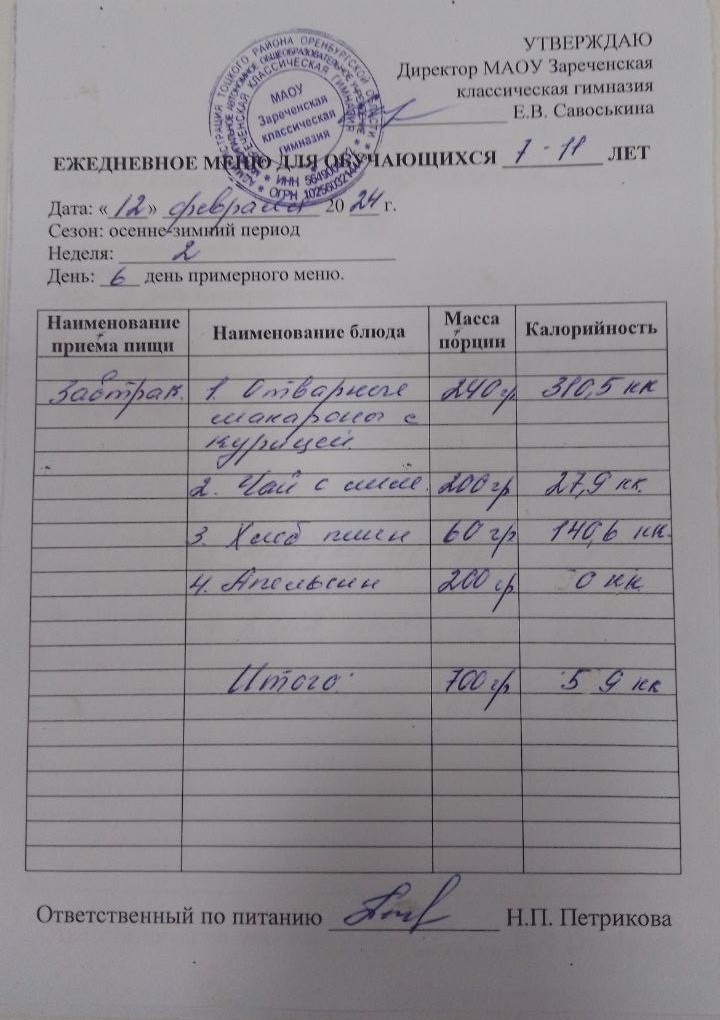 УТВЕРЖДАЮ
Директор МАОУ Зареченская
классическая гимназия
Е.В. Савоськина
МАОУ
Зареченская
классическая
гимназия
ЕЖЕДНЕВНОЕ МЕНЮ ДЛЯ ОБУЧАЮЩИХСЯ 7-11 ЛЕТ
Дата: «12» февраля 2024 г.
Сезон: осенне-зимний период
Неделя: 2
День: 6 день примерного меню.
Наименование приема пищи Наименование блюда Масса порции Калорийность
Завтрак 1. Отварные 240 гр 310,5 кк
макароны с
курицей
2. Чай с 200 гр 27,9 кк
3. Хлеб пшен 60 гр 140,6 кк.
4. Апельсин 200 гр 0 кк
Итого: 700 гр 5 9 кк
Ответственный по питанию Н.П. Петрикова